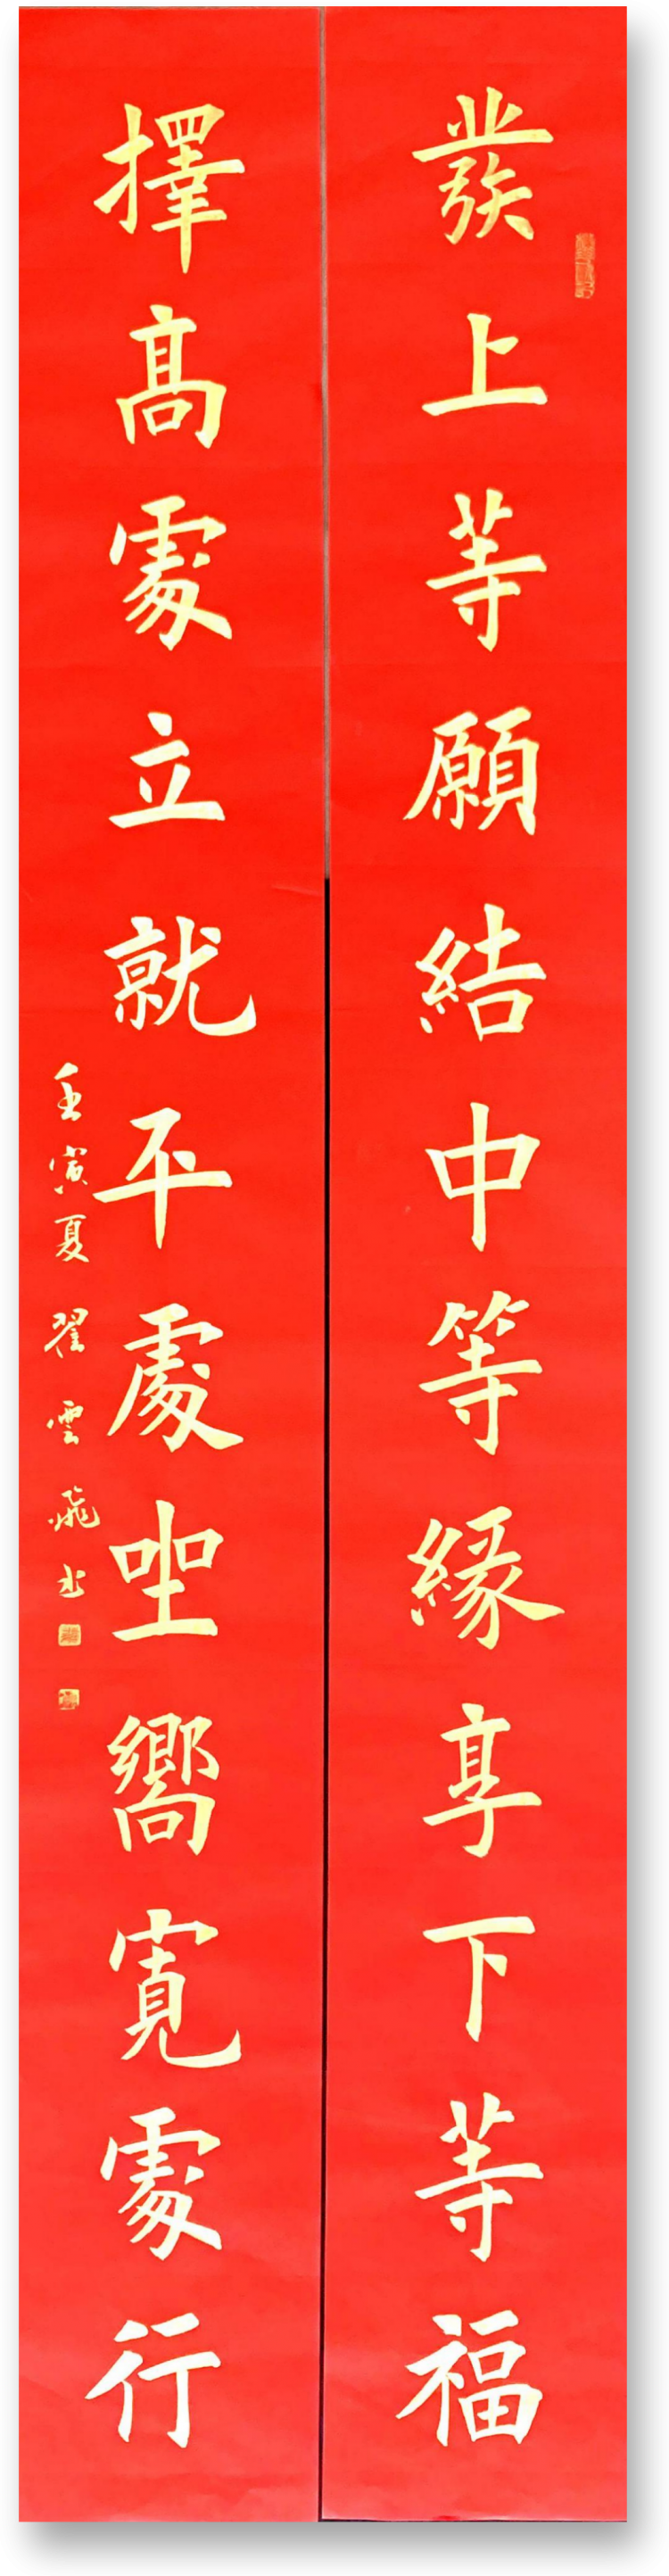 發上等願結中等緣享下等福
擇高處立就平處坐嚮寬處行
壬寅夏翟雲飛书